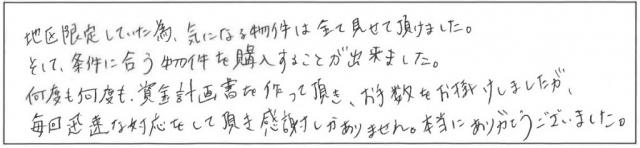 地区限定していた為、気になる物件は全て見せて頂けました。
そして、条件に合う物件を購入することが出来ました。
何度も何度も、資金計画書を作って頂き、お手数をお掛けしましたが、
毎回迅速な対応をして頂き感謝しかありません。本当にありがとうございました。